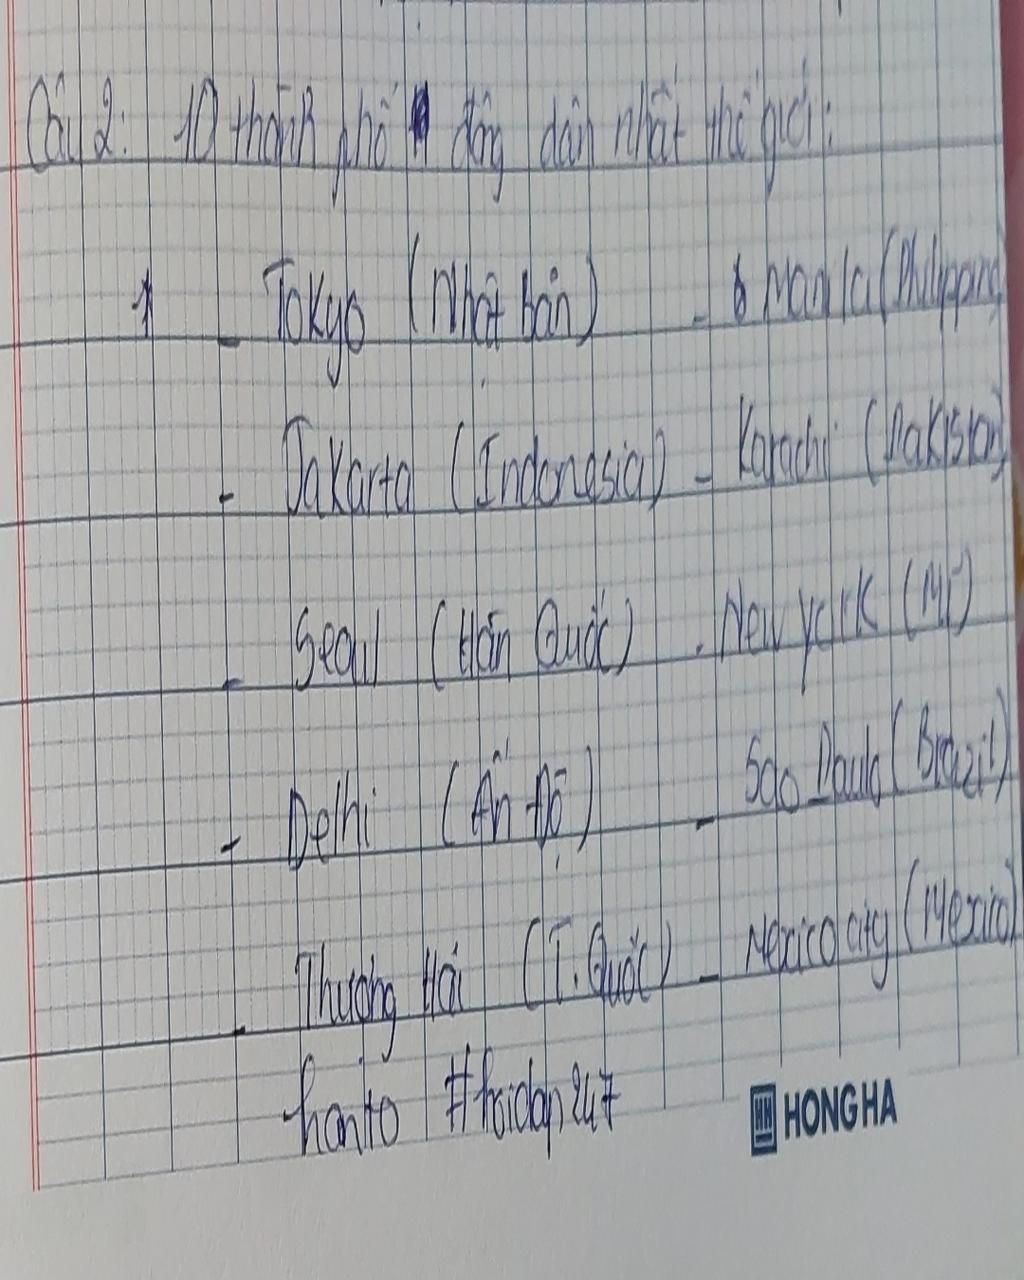 Câu 2: 10 thành phố đông dân nhất thế giới:
- Tokyo (Nhật Bản) - Manila (Philippin
- Jakarta (Indonesia) - Karachi (Pakistan)
- Seoul (Hàn Quốc) - New york (Mĩ)
- Delhi (Ấn Độ) - Sao Paulo (Brazil)
- Thượng Hải (T. Quốc) - Mexico city (Mexico)
hanto #hoidap247
HONG HA